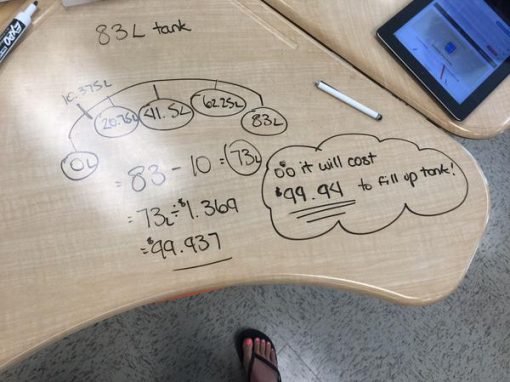 EXPO
83L tank
10.375L
0L
20.75L
41.5L
62.25L
83L
= 83 - 10 = 73L
= 73L ÷ $1.369
= $99.937
∴ it will cost
$99.94 to fill up tank!